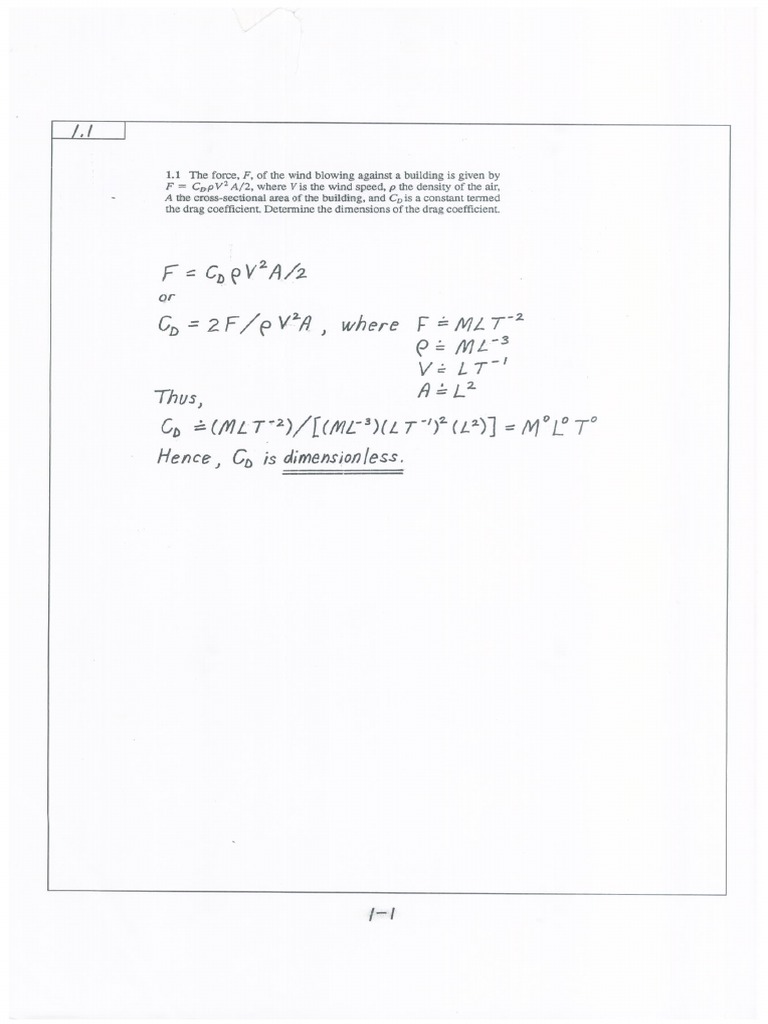 1.1
1.1 The force, F, of the wind blowing against a building is given by
F = C_DρV² A/2, where V is the wind speed, ρ the density of the air,
A the cross-sectional area of the building, and C_D is a constant termed
the drag coefficient. Determine the dimensions of the drag coefficient.
F = C_D ρV²A/2
or
C_D = 2F/ρV²A, where F ≐ MLT⁻²
ρ ≐ ML⁻³
V ≐ LT⁻¹
A ≐ L²
Thus,
C_D ≐ (MLT⁻²)/[(ML⁻³)(LT⁻¹)²(L²)] = M⁰L⁰T⁰
Hence, C_D is dimensionless.
1-1